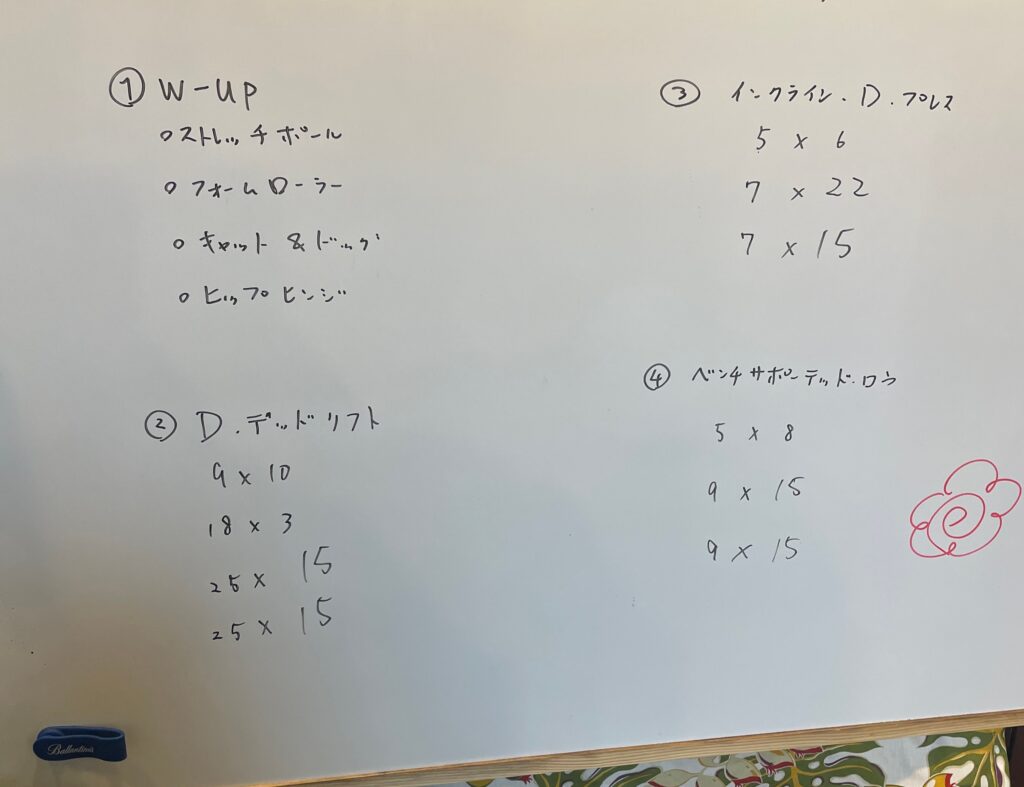 ① W-UP
○ストレッチポール
○フォームローラー
○キャット&ドッグ
○ヒップヒンジ
② D.デッドリフト
9 × 10
18 × 3
25 × 15
25 × 15
③ インクライン.D.プレス
5 × 6
7 × 22
7 × 15
④ ベンチサポーテッド.ロウ
5 × 8
9 × 15
9 × 15
Ballantine's